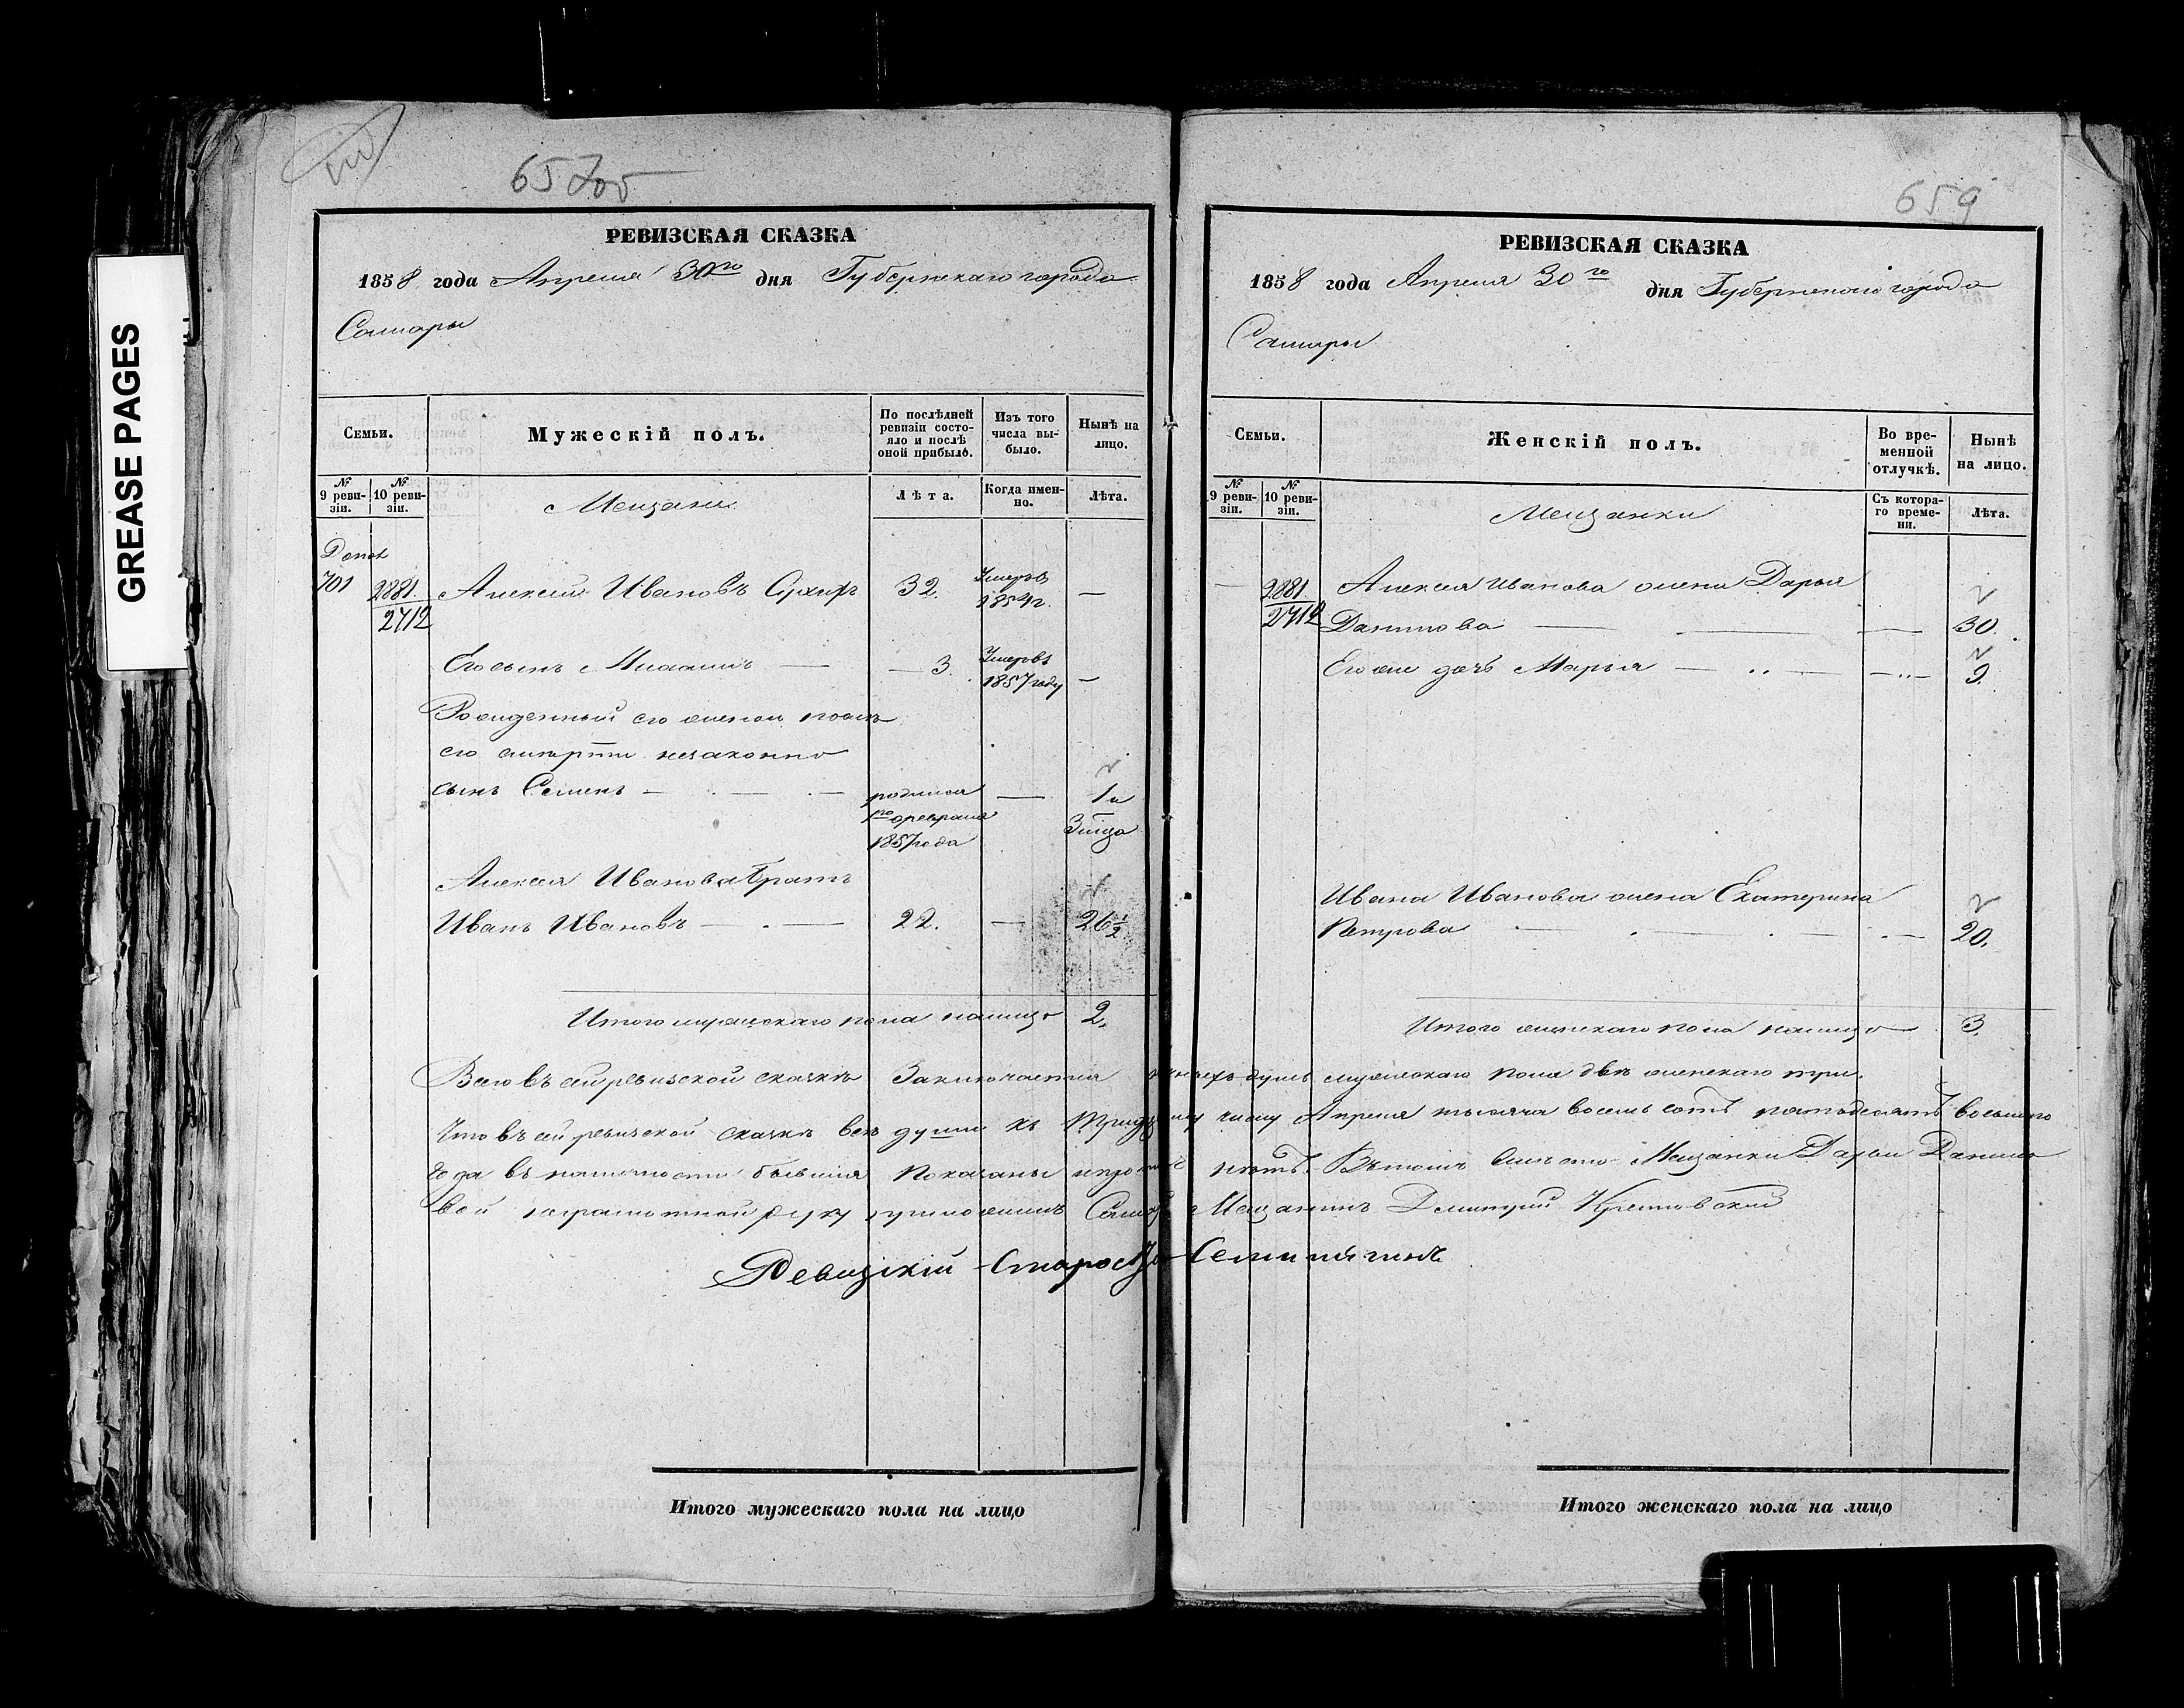 GREASE PAGES
657об
РЕВИЗСКАЯ СКАЗКА
1858 года Апреля 30го дня Губернскаго города
Самары
Семьи.
Мужескій полъ.
По послѣдней ревизіи состояло и послѣ оной прибыло.
Изъ того числа выбыло.
Нынѣ на лицо.
№ 9 ревизіи.
№ 10 ревизіи.
Мещани
Лѣта.
Когда именно.
Лѣта.
701 2881. Алексей Ивановъ 32. Умеръ 1854г. —
2712
Его сынъ — 3. Умеръ 1857 году —
Рожденный его женой после
его смерти незаконно
сынъ Семенъ — родился 1го февраля 1857 года — 1 и 3 м͞ца
Алексея Иванова братъ
Иванъ Ивановъ — 22. — 26 1/2
Итого мужескаго пола налицо 2.
659
РЕВИЗСКАЯ СКАЗКА
1858 года Апреля 30го дня Губернскаго города
Самары
Семьи.
Женскій полъ.
Во временной отлучкѣ.
Нынѣ на лицо.
№ 9 ревизіи.
№ 10 ревизіи.
Мещанки
Съ котораго времени.
Лѣта.
— 2881. Алексея Иванова жена Дарья
2712 Данилова — — 30.
Его же дочь Марья — — 9.
Ивана Иванова жена Екатерина
Петрова — — 20.
Итого женскаго пола налицо 3.
Всего въ сей ревизской сказкѣ заключается душъ мужескаго пола двѣ женскаго три.
Что въ сей ревизской сказкѣ все души къ тридцатому числу Апреля тысяча восемь сотъ пятьдесятъ восьмаго
года въ наличности бывшия показаны и нѣтъ. Вместо Мещанки Дарьи Данило
вой неграмотной руку приложилъ Мещанинъ Дмитрий
Ревизскій Староста
Итого мужескаго пола на лицо
Итого женскаго пола на лицо